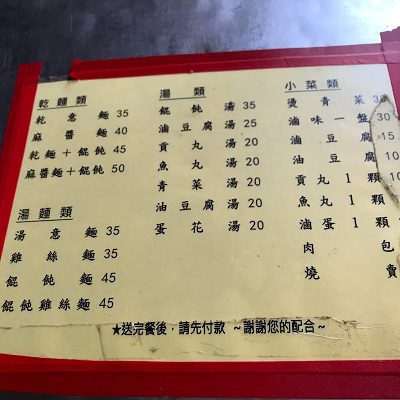 乾麵類
乾意麵 35
麻醬麵 40
乾麵＋餛飩 45
麻醬麵＋餛飩 50
湯麵類
湯意麵 35
雞絲麵 35
餛飩麵 45
餛飩雞絲麵 45
湯類
餛飩湯 35
滷豆腐湯 25
貢丸湯 20
魚丸湯 20
青菜湯 20
油豆腐湯 20
蛋花湯 20
小菜類
燙青菜 30
滷味一盤 30
滷豆腐 15
油豆腐
貢丸1顆
魚丸1顆
滷蛋1顆
肉包
燒賣
★送完餐後，請先付款 ~謝謝您的配合~